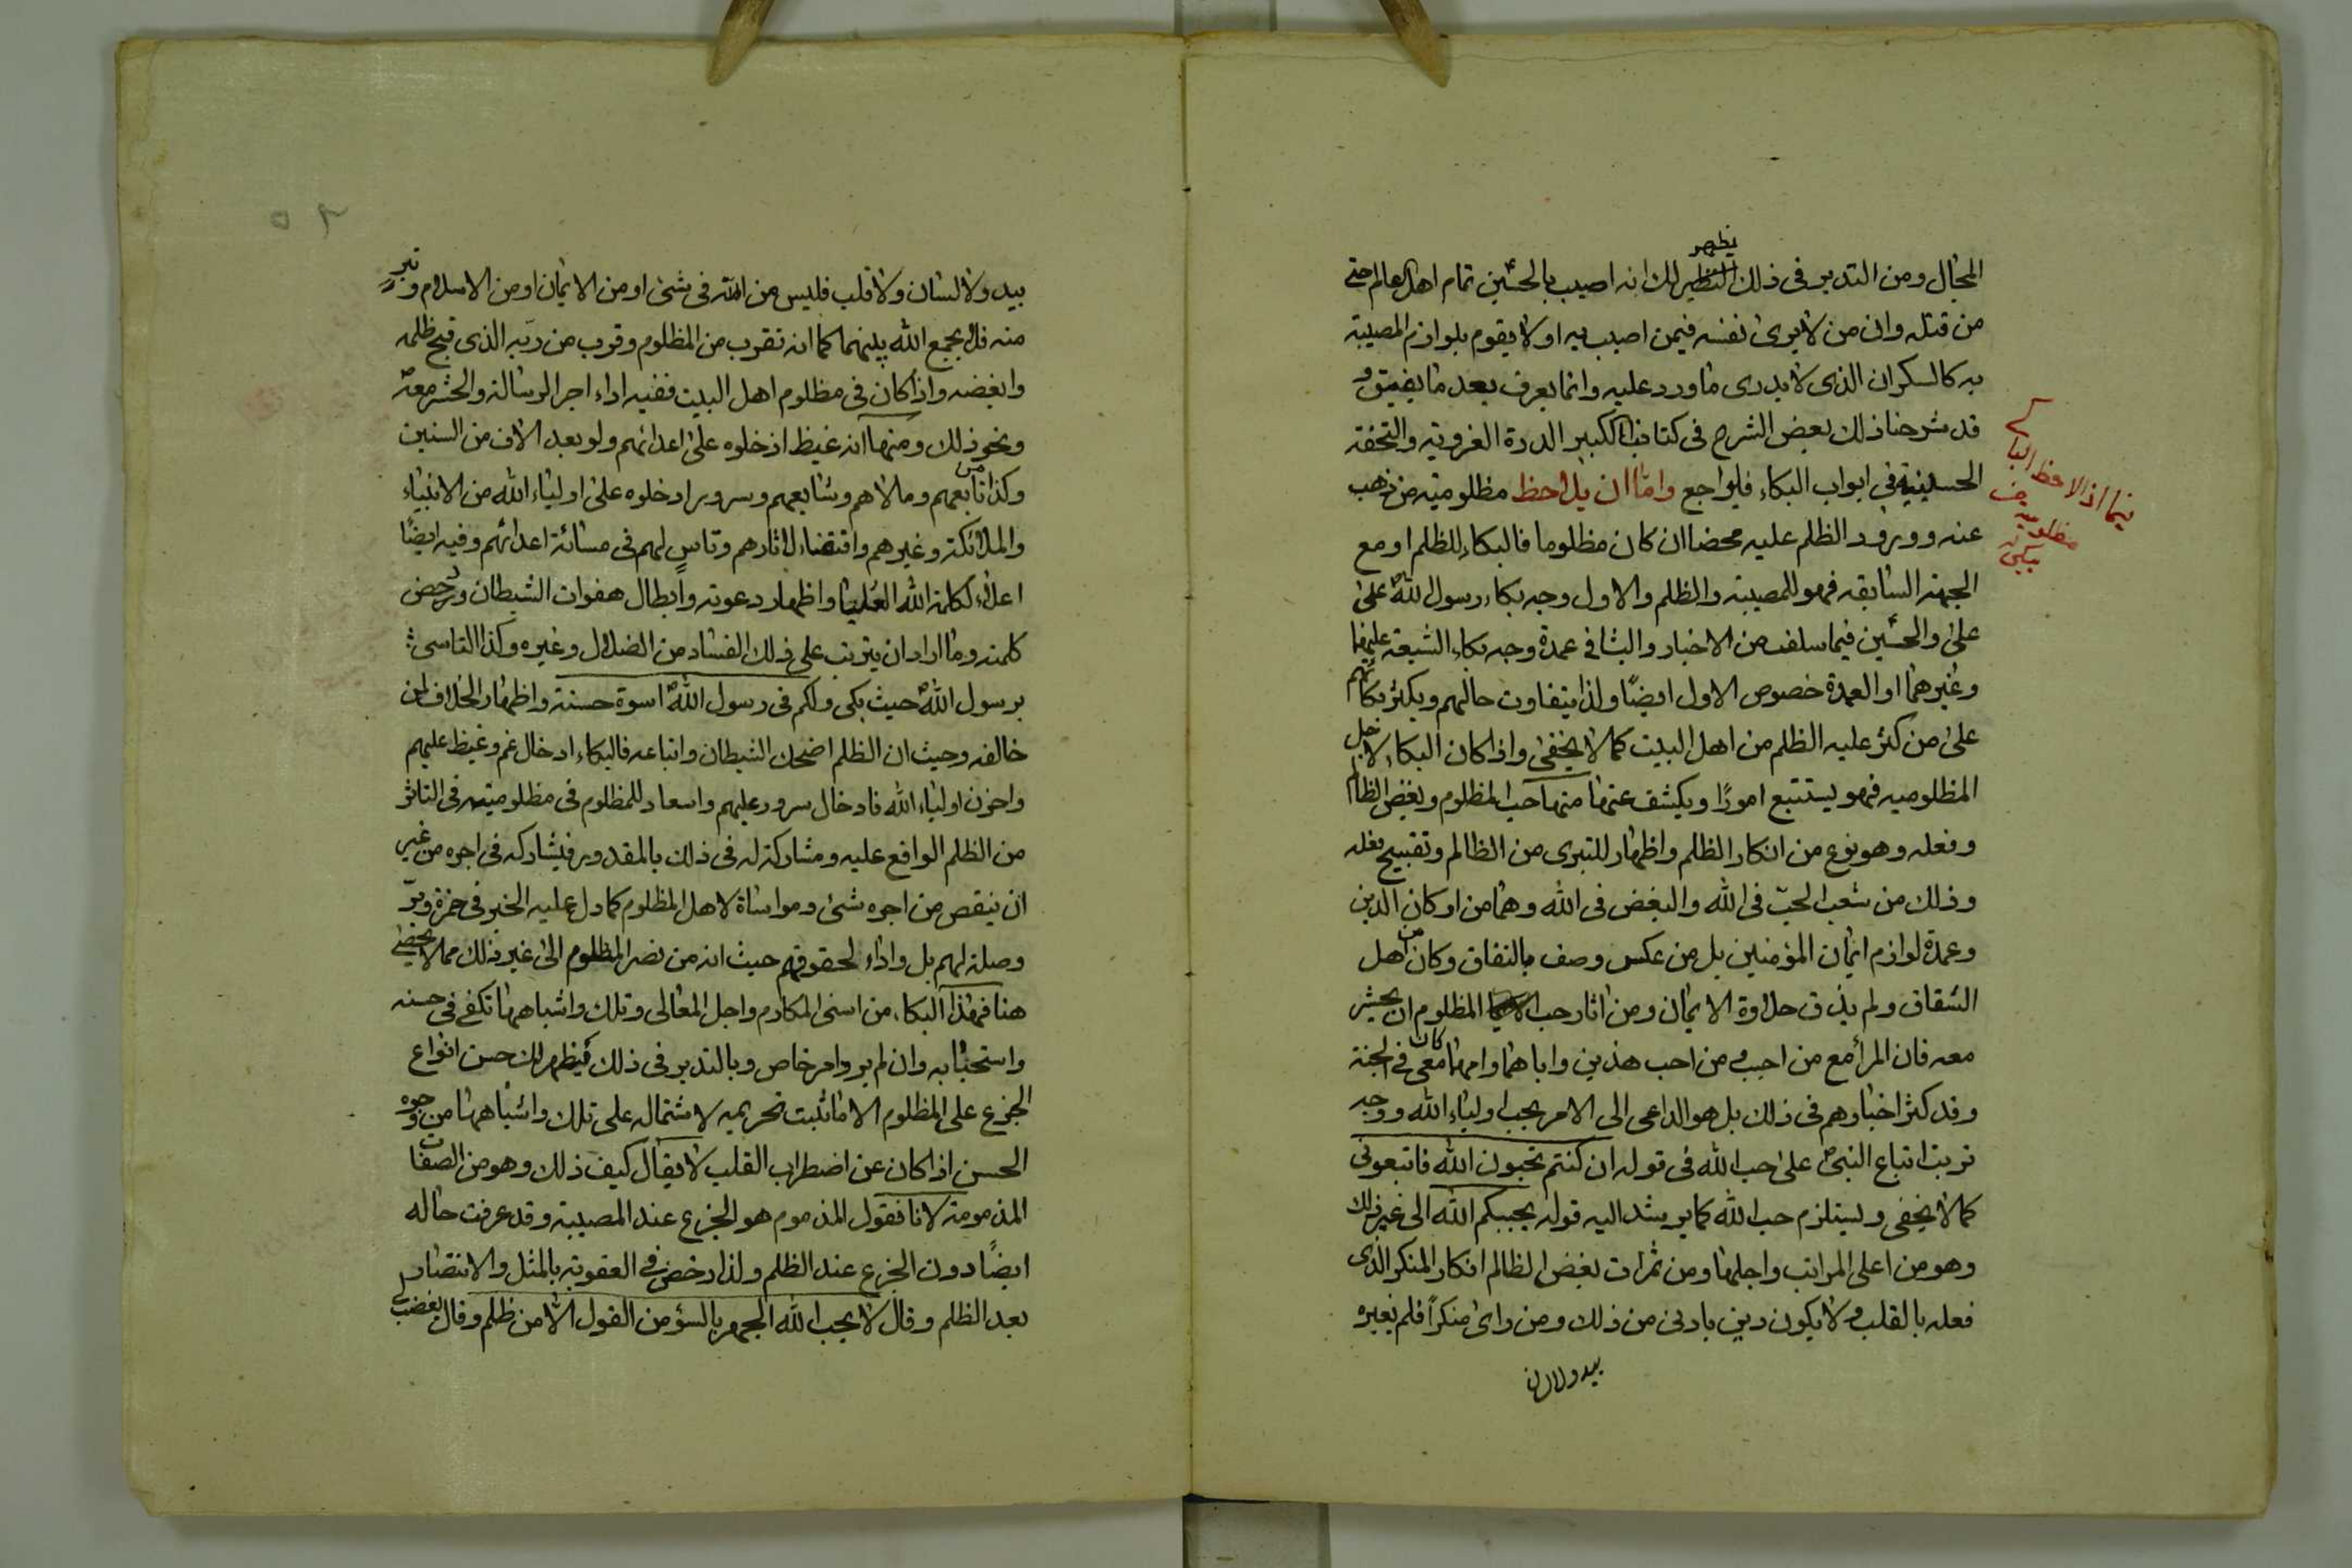 المجال ومن التدبر فى ذلك يظهر لك انه اصيب بالحسين تمام اهل العالم حتى
من قتله وان من لايرى نفسه فيمن اصيب به او لا يقوم بلوازم المصيبة
به كالسكران الذى لا يدرى ما ورد عليه وانما يعرف بعد ما يفيق و
قد شرحنا ذلك بعض الشرح فى كتابنا الكبير الدرة الغروية والتحفة
الحسينية فى ابواب البكاء فليراجع واما ان يلاحظ مظلوميته من ذهب
عنه وورود الظلم عليه محضا ان كان مظلوما فالبكاء للظلم او مع
الجهة السابقة فهو للمصيبة والظلم والاول وجه بكاء رسول الله على
على والحسين فيما سلف من الاخبار والثانى عمدة وجه بكاء الشيعة عليهما
وغيرهما او العمدة خصوص الاول ايضًا ولذا يتفاوت حالهم ويكثر بكائهم
على من كثر عليه الظلم من اهل البيت كما لا يخفى واذا كان البكاء لاجل
المظلوميه فهو يستتبع امورًا ويكشف عنها منها حب المظلوم وبغض الظالم
وفعله وهو نوع من انكار الظلم واظهار للتبرى من الظالم وتقبيح فعله
وذلك من شعب الحبّ فى الله والبغض فى الله وهما من اركان الدين
وعمدة لوازم ايمان المؤمنين بل من عكس وصف بالنفاق وكان من اهل
الشقاق ولم يذق حلاوة الايمان ومن اثار حب المظلوم ان يحشر
معه فان المرأ مع من احب من احب هذين واباهما وامهما كان معى فى الجنة
وقد كثر اخبارهم فى ذلك بل هو الداعى الى الامر بحب اولياء الله ووجه
ترتب اتباع النبى على حب الله فى قوله ان كنتم تحبون الله فاتبعونى
كما لا يخفى ويستلزم حب الله كما يرشد اليه قوله يحببكم الله الى غير ذلك
وهو من اعلى المراتب واجلها ومن ثمرات بغض الظالم انكار المنكر الذى
فعله بالقلب ولا يكون دين بادنى من ذلك ومن راى منكرًا فلم يغيره
بيد ولا لسان
مظلوميه
بيد ولا لسان ولا قلب فليس من الله فى شئ او من الايمان او من الاسلام و
منه فلا يجمع الله بينهما كما انه تقرب من المظلوم وقرب من ربّه الذى قبح ظلمه
وابغضه واذا كان فى مظلوم اهل البيت ففيه اداء اجر الرسالة والحشر معه
ونحو ذلك ومنها انه غيظ ادخلوه على اعدائهم ولو بعد الاف من السنين
وكذا من تابعهم ومالاهم وشايعهم وسرور ادخلوه على اولياء الله من الانبياء
والملائكة وغيرهم واقتفاء لاثارهم وتاس لهم فى مسائة اعدائهم وفيه ايضًا
اعلاء لكلمة الله العليا واظهار دعوته وابطال هفوات الشيطان ودحض
كلمته وما اراد ان يترتب على ذلك الفساد من الضلال وغيره وكذا التاسى
برسول الله حيث بكى ولكم فى رسول الله اسوة حسنة واظهار الخلاف لمن
خالفه وحيث ان الظلم اضحك الشيطان واتباعه فالبكاء ادخال غم وغيظ عليهم
واحزن اولياء الله فادخال سرور عليهم واسعاد للمظلوم فى مظلوميته فى التاثر
من الظلم الواقع عليه ومشاركة له فى ذلك بالمقدور فيشاركه فى اجره من غير
ان ينقص من اجره شئ ومواساة لاهل المظلوم كما دل عليه الخبر فى حمزة وبرّ
وصلة لهم بل واداء لحقوقهم حيث انه من نصر المظلوم الى غير ذلك مما لا يحصى
هنا فهذا البكاء من اسنى المكارم واجل المعالى وتلك واشباهها تكفى فى حسنه
واستحبابه وان لم يرد امر خاص وبالتدبر فى ذلك يظهر لك حسن انواع
الجزع على المظلوم الا ما ثبت تحريمه لاشتماله على تلك واشباهها من وجوه
الحسن اذا كان عن اضطراب القلب لا يقال كيف ذلك وهو من الصفات
المذمومة لانا نقول المذموم هو الجزع عند المصيبة وقد عرفت حاله
ايضًا دون الجزع عند الظلم ولذا رخص فى العقوبة بالمثل والانتصار
بعد الظلم وقال لا يحب الله الجهر بالسؤ من القول الا من ظلم وقال